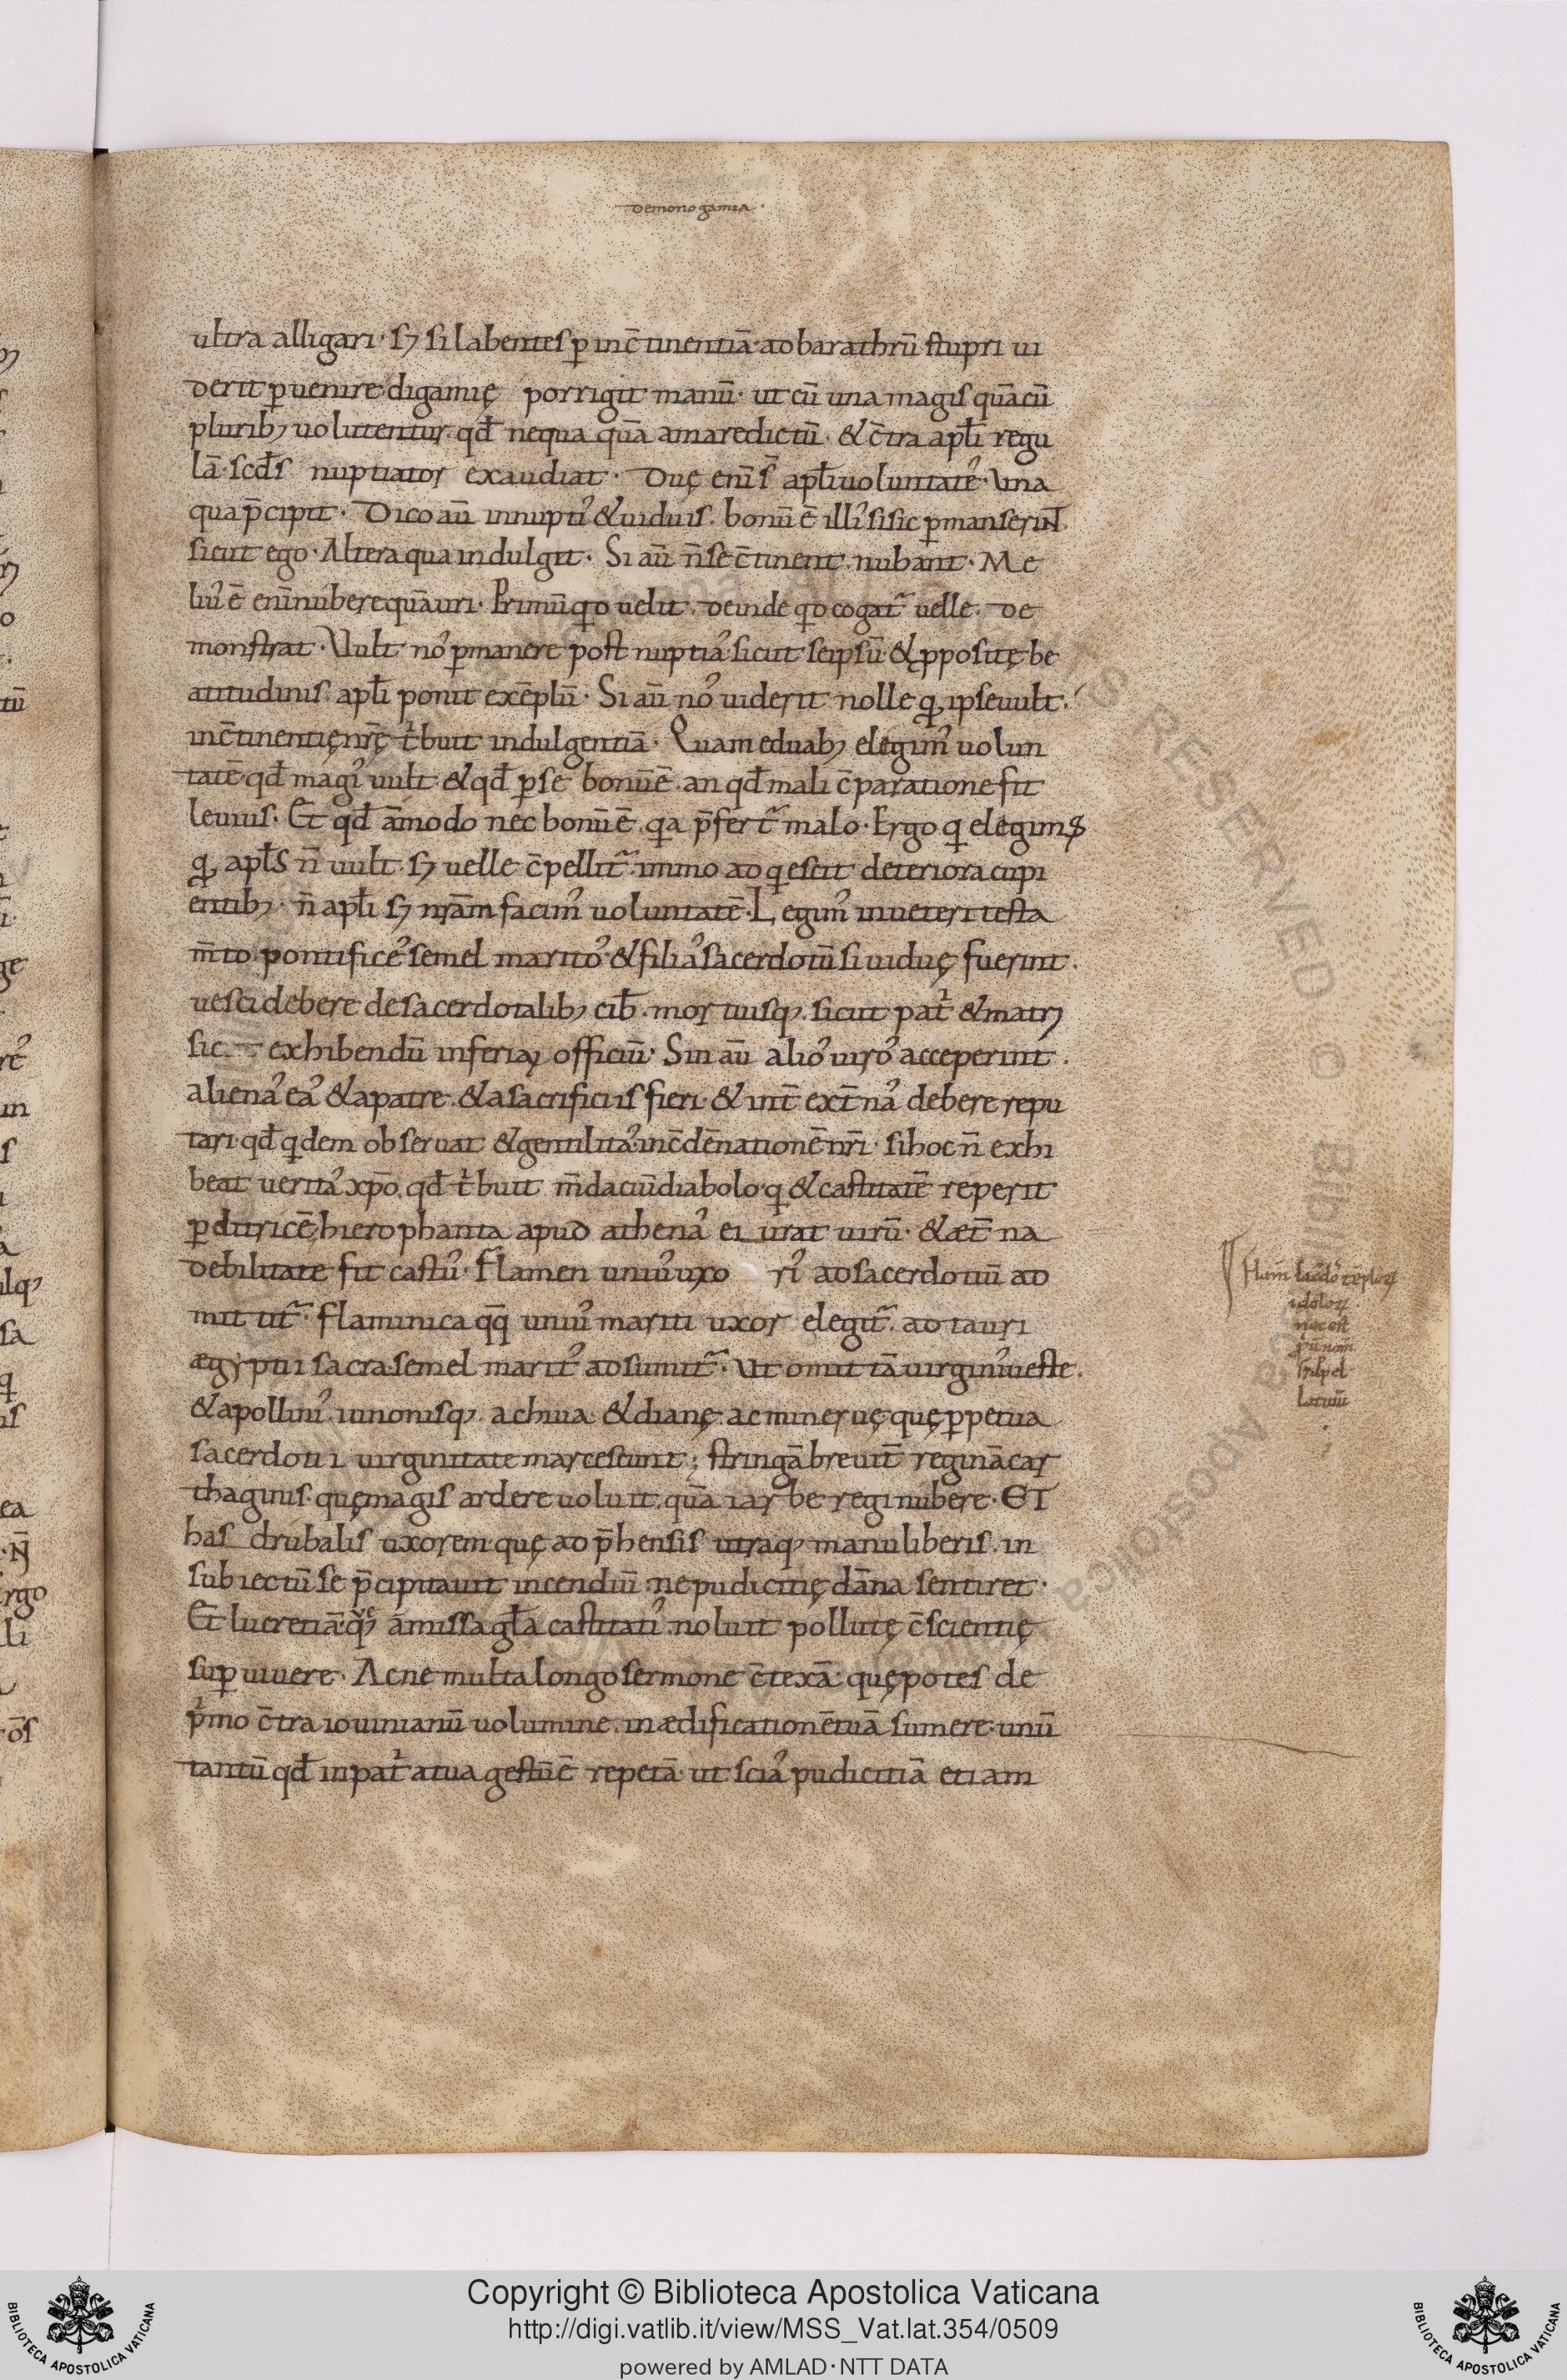 demonogamia.
ultra alligari· sꝫ si labentes ꝑ inc̄tinentiā ad barathrū stupri ui
derit ꝑuenire digamię porrigit manū· ut cū una magis quācū
pluribꝫ uolutentur· qd̄ nequaquā amaredictū· & c̄tra apl̄i regu
lā· scd̄s nuptiator exaudiat· Duę eni s̄ apl̄i uoluntateˀ· Una
qua p̄cipit· Dico aū innuptiˀ & uiduis· bonū ē illiˀ si sic ꝑmanserint
sicut ego· Altera qua indulget· Si aū n̄ se c̄tinent· nubant· Me
liuˀ ē eni nubere quā uri· Primū qd uelit· deinde qd cogat᷑ uelle· de
monstrat· Vult noˀ ꝑmanere post nuptiaˀ sicut seipsū· & ꝓpositę be
atitudinis apl̄i ponit exēplū· Si aū noˀ uiderit nolle qđ ipse uult·
inc̄tinentię nr̄ę tͥbuit indulgentiā· Quam e duabꝫ elegimˀ uolun
tatē qd̄ magiˀ uult· & qd̄ ꝑ se bonū ē· an qd̄ mali c̄paratione fit
leuius· Et qd̄ āmodo nec bonū ē· qa p̄fert᷑ malo· Ergo si elegimus
qđ apl̄s n̄ uult· sꝫ uelle c̄pellit᷑· immo adqescit deteriora cupi
entibꝫ· n̄ apl̄i sꝫ nr̄am facimˀ uoluntatē· Legimˀ in ueteri testa
m̄to pontificeˀ semel maritoˀ· & filiaˀ sacerdotū si uiduę fuerint·
uesci debere de sacerdotalibꝫ cib̄· mortuisqꝫ· sicut patͥ & matri
sic exhibendū inferiaꝝ officiū· Sin aū alioˀ uiroˀ acceperint·
alienaˀ eaˀ & a patre· & a sacrificiis fieri· & int̄ ext̄naˀ debere repu
tari· qd̄ qdem obseruat & gentilitaˀ in c̄dēnationē nr̄i· si hoc n̄ exhi
beat ueritaˀ xp̄o· qd̄ tͥbuit m̄daciū diabolo· q & castitatē reperit
ꝑditricē· hierophanta apud athenaˀ eiurat uirū· & æt̄na
debilitate fit castuˀ· Flamen uniuˀ uxo riˀ ad sacerdotiū ad
mittit᷑· Flaminica qq̄ uniuˀ mariti uxor elegit᷑· ad tauri
ægyptii sacra semel maritˀ adsumit᷑· Vt omittā uirgineˀ ueste·
& apolliniˀ· iunonisqꝫ· achiua & dianę· ac mineruę quę ꝑpetua
sacerdotii uirginitate marcescunt; stringā breuit̄ reginā car
thaginis· quę magis ardere uoluit· quā iarbe regi nubere· ET
hasdrubalis uxorem· quę adp̄hensis utraqꝫ manu liberis· in
subiectū se p̄cipitauit incendiū· ne pudicitię dāna sentiret·
Et lucretiā· quę amissa gl̄a castitatiˀ· noluit pollutę c̄scientię
suꝑuiuere· Ac ne multa longo sermone c̄texā· quę potes de
pͥmo c̄tra iouinianū uolumine· in ædificationē tuā sumere· unū
tantū qd̄ in patͥa tua gestū ē repetā· ut sciaˀ pudicitiā etiam